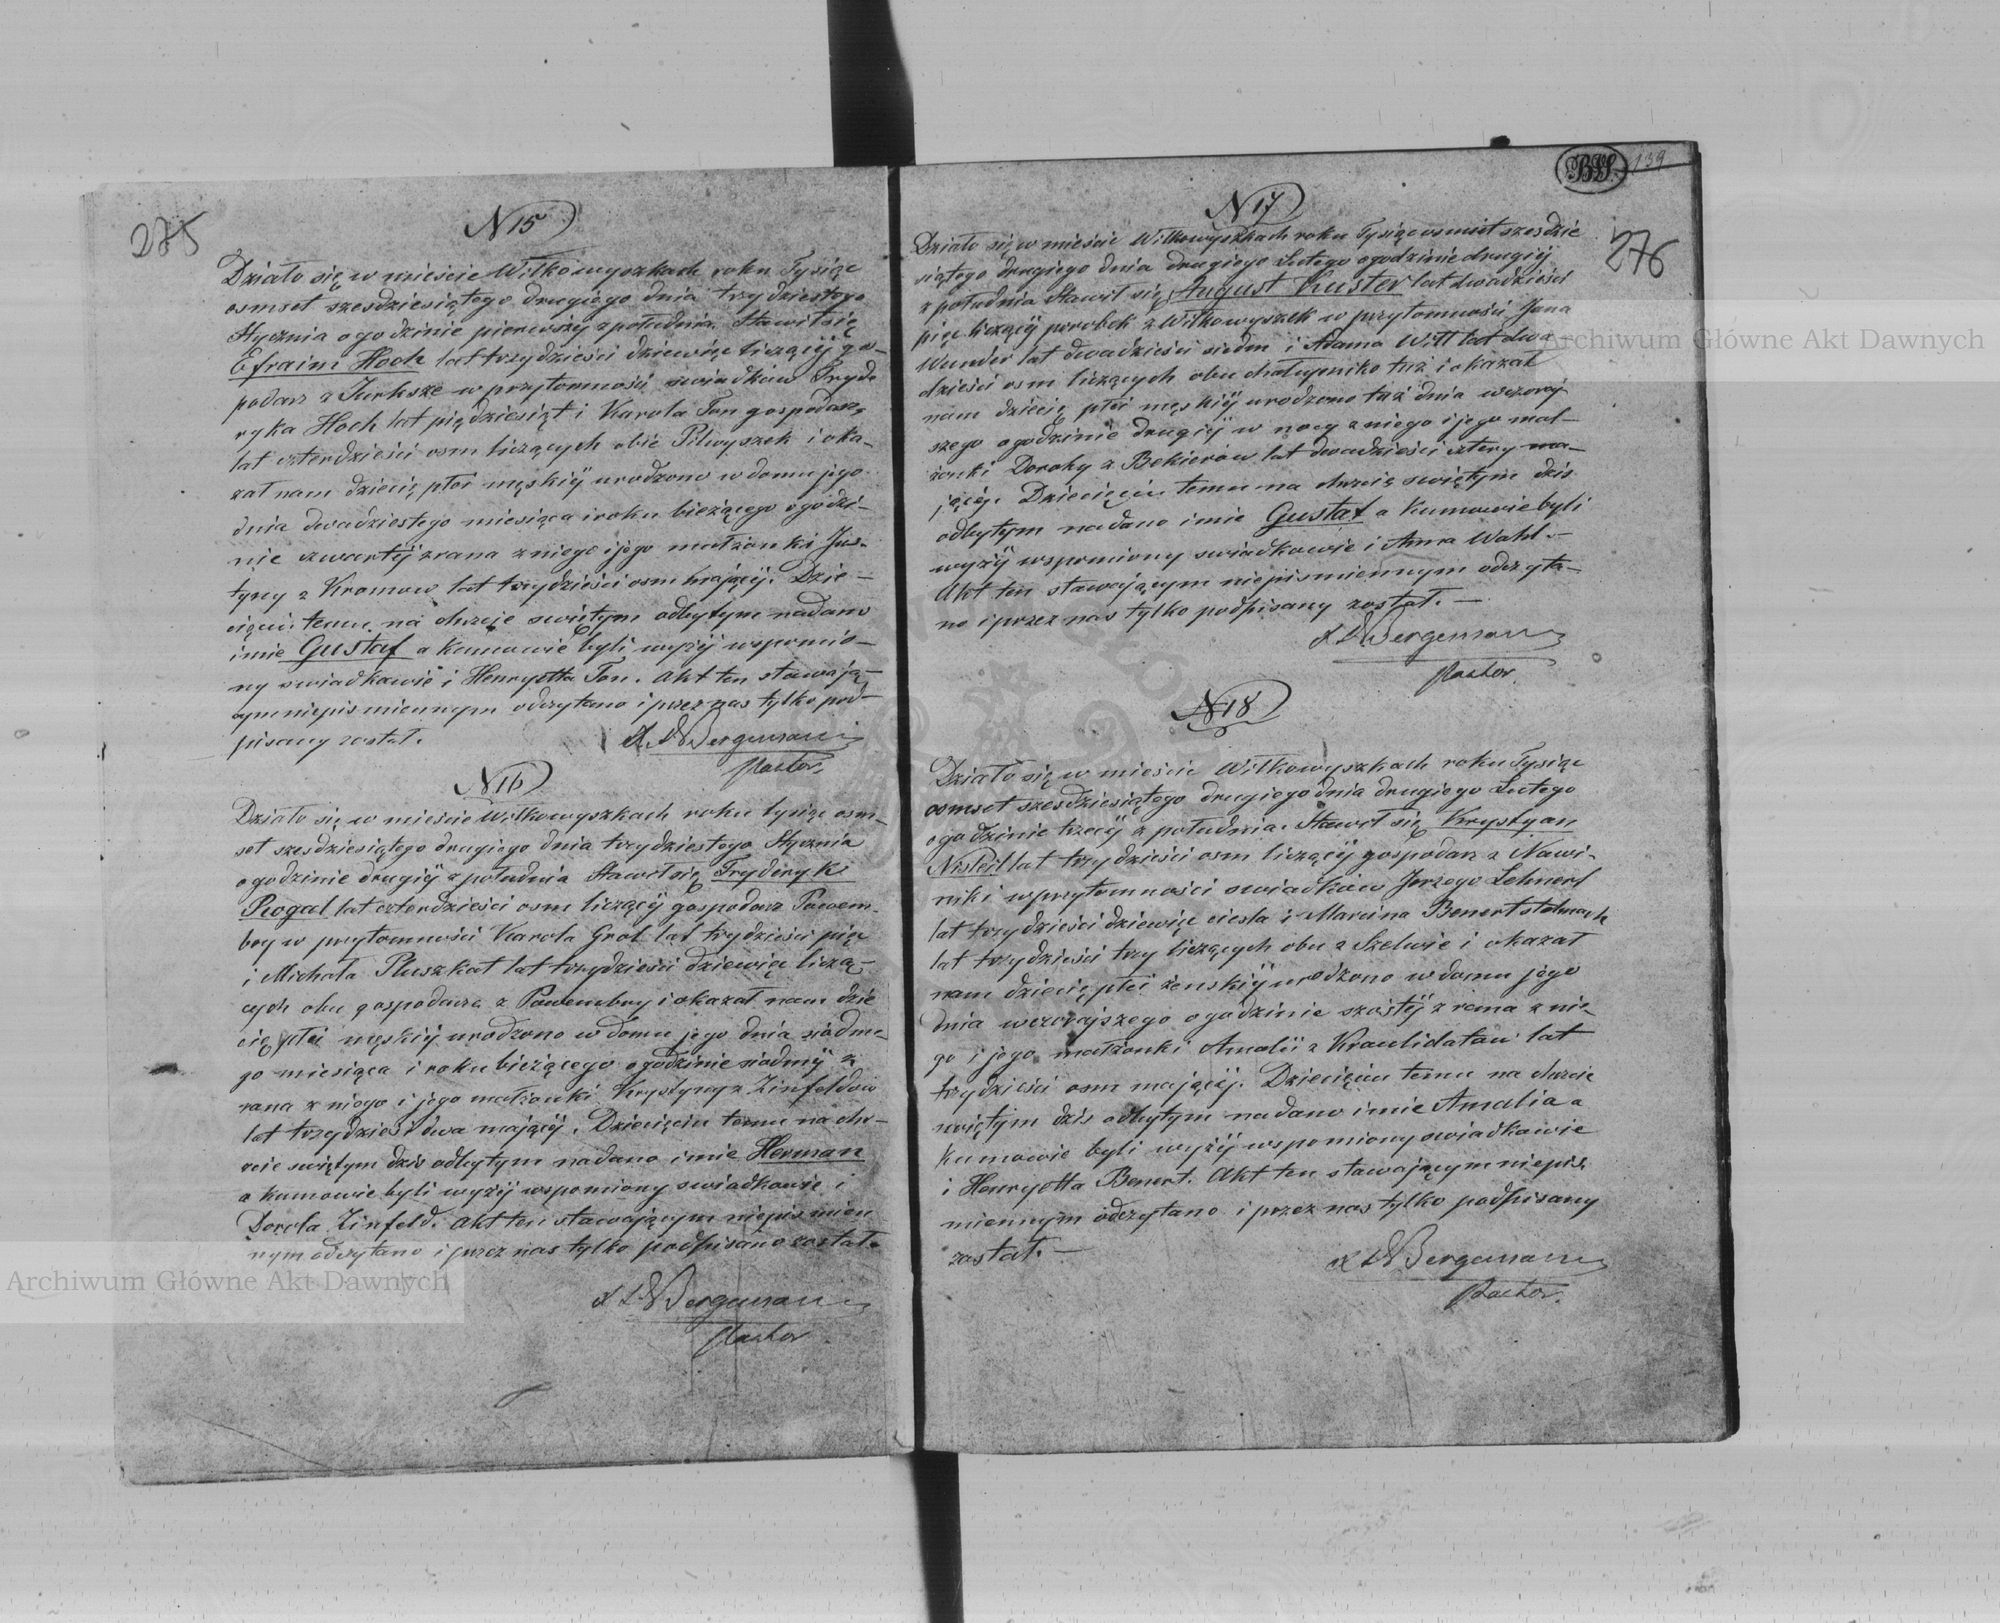 275
N 15
Działo się w mieście Wilkowyszkach roku Tysiąc
osmset szesdziesiątego drugiego dnia trzydziestego
Stycznia o godzinie pierwszÿ z południa. Stawił się
Efraim Hoch lat trzydzieści dziewięc liczącÿ gos-
podarz z Jurksze w przytomności swiadków Fryde
ryka Hoch lat pięćdziesiąt i Karola Ton gospodarz
lat czterdzieści osm liczących obie Pilwyszek i oka-
zał nam dziecię płci męskiÿ urodzone w domu jego
dnia dwadziestego miesiąca i roku bieżącego o godzi-
nie czwartÿ zrana z niego i jego małżonki Jus-
tyny z Kromow lat trzydzieści osm mającÿ. Dzie-
cięciu temu na chrzcie swiętym odbytym nadano
imie Gustaf a kumowie byli wyżÿ wspomio-
ny swiadkowie i Henryetta Ton. Akt ten stawają-
cym niepismiennym odczytano i przez nas tylko pod-
pisany został.
X. Bergemann
Pastor.
N 16
Działo się w mieście Wilkowyszkach roku tysiąc osm-
set szesdziesiątego drugiego dnia trzydziestego Stycznia
o godzinie drugiÿ z południa Stawił się Fryderyk
Rogal lat czterdzieści osm liczącÿ gospodarz Pawem-
bry w przytomności Karola Grol lat trzydzieści pięc
i Michała Pluszkat lat trzydzieści dziewięc liczą-
cych obu gospodarze z Pawembry i okazał nam dzie
cię płci męskiÿ urodzone w domu jego dnia siódme-
go miesiąca i roku bieżącego o godzinie siodmÿ z
rana z niego i jego małżonki Krystyny z Zinfeldow
lat trzydzieści dwa mającÿ. Dziecięciu temu na chr-
zcie swiętym dzis odbytym nadano imie Herman
a kumowie byli wyżÿ wspomiony swiadkowie i
Dorota Zinfeld. Akt ten stawającym niepismien
nym odczytano i przez nas tylko podpisano został.
X. Bergemann
Pastor
BS. 139
276
N 17
Działo się w mieście Wilkowyszkach roku Tysiąc osmset szesdzie
siątego drugiego dnia drugiego Lutego o godzinie drugiÿ
z południa Stawił się August Kuster lat dwadzieści
pięc liczącÿ parobek z Wilkowyszek w przytomności Jana
Wunder lat dwadzieści siedm i Adama Witt lat dwa
dzieści osm liczących obu chałupniko tuż i okazał
nam dziecię płci męskiÿ urodzone tuż dnia wczoraj-
szego o godzinie drugiÿ w nocy z niego i jego mał-
żonki Doroty z Bekierow lat dwadzieści cztery ma-
jącéj. Dziecięciu temu na chrzcie swiętym dzis
odbytym nadano imie Gustaf a kumowie byli
wyżÿ wspomiony swiadkowie i Anna Wahl.-
Akt ten stawającym niepismiennym odczyta-
no i przez nas tylko podpisany został. -
X. Bergemann
Pastor.
N 18
Działo się w mieście Wilkowyszkach roku Tysiąc
osmset szesdziesiątego drugiego dnia drugiego Lutego
o godzinie trzecÿ z południa. Stawił się Krystyan
lat trzydzieści osm liczącÿ gospodarz z Nawi-
niki w przytomności swiadków Jerzego Lehnert
lat trzydzieści dziewięc ciesla i Marcina Benert stelmach
lat trzydzieści trzy liczących obu z Szelwie i okazał
nam dziecię płci żenskiÿ urodzone w domu jego
dnia wczorajszego o godzinie szóstÿ z rana z nie-
go i jego małżonki Amalii z Kraulidatow lat
trzydzieści osm mającéj. Dziecięciu temu na chrzcie
swiętym dzis odbytym nadano imie Amalia a
kumowie byli wyżÿ wspomiony swiadkowie
i Henryetta Benert. Akt ten stawającym niepis-
miennym odczytano i przez nas tylko podpisany
został. -
X. Bergemann
Pastor.
Archiwum Główne Akt Dawnych
Archiwum Główne Akt Dawnych